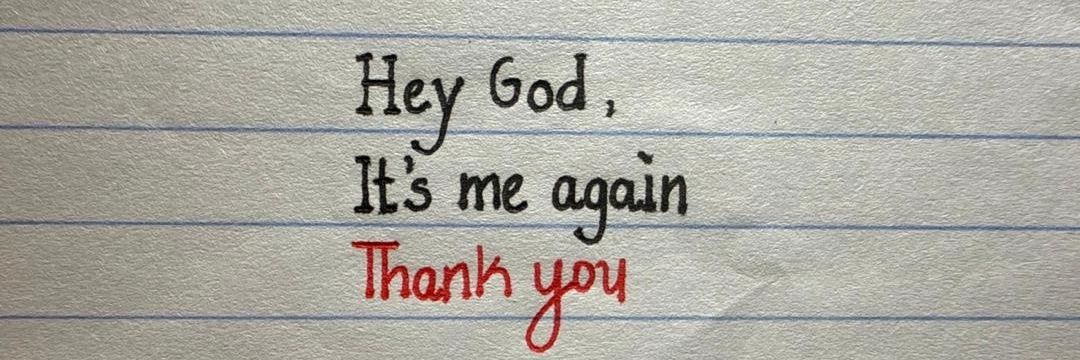 Hey God,
It's me again
Thank you